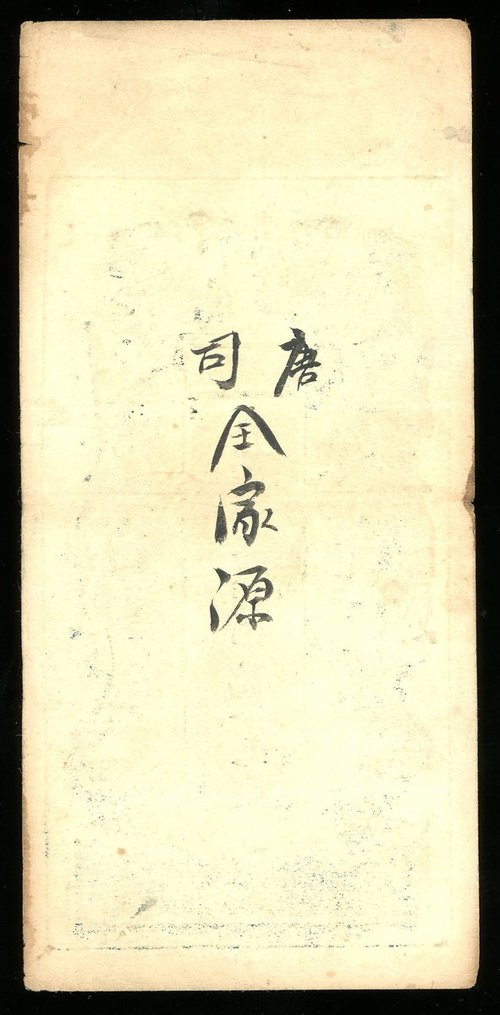 唐司
全家源